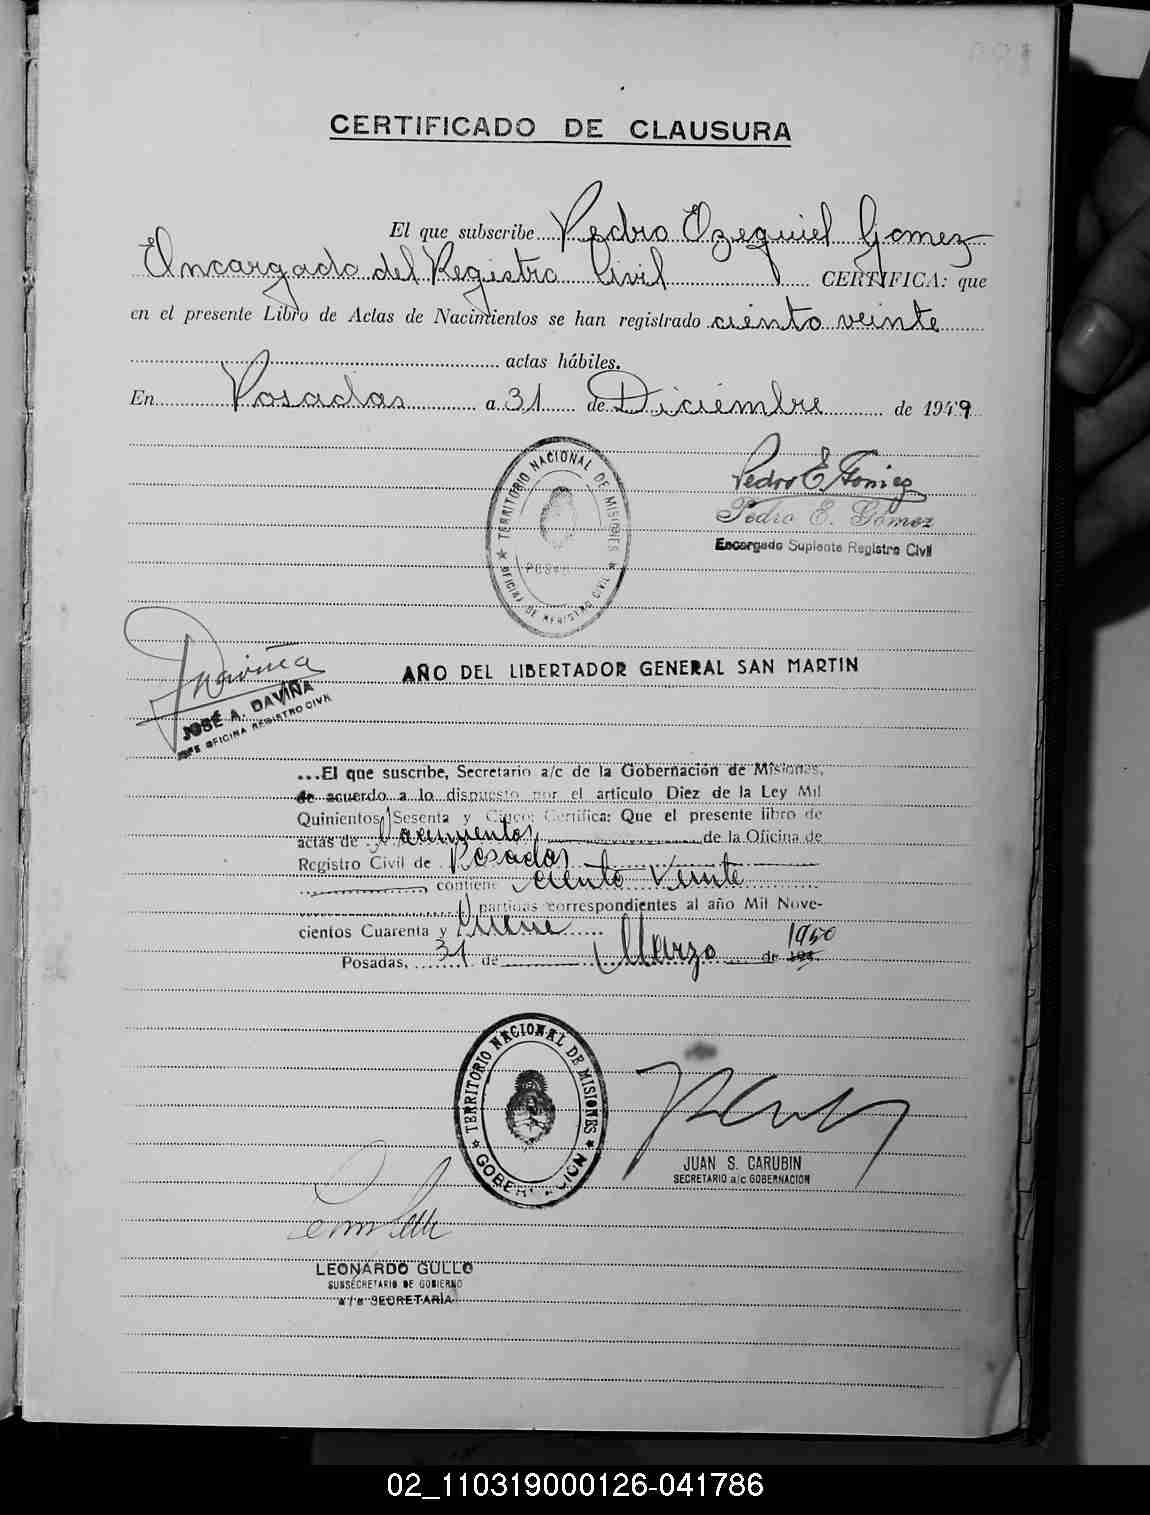 CERTIFICADO DE CLAUSURA
El que subscribe Pedro Ezequiel Gomez
Encargado del Registro Civil CERTIFICA: que
en el presente Libro de Actas de Nacimientos se han registrado ciento veinte
actas hábiles.
En Posadas a 31 de Diciembre de 1949
TERRITORIO NACIONAL DE MISIONES
OFICINA DE REGISTRO CIVIL
Pedro E. Gomez
Pedro E. Gomez
Encargado Suplente Registro Civil
Daviña
JOSÉ A. DAVIÑA
JEFE OFICINA REGISTRO CIVIL
AÑO DEL LIBERTADOR GENERAL SAN MARTIN
...El que suscribe, Secretario a/c de la Gobernación de Misiones,
de acuerdo a lo dispuesto por el artículo Diez de la Ley Mil
Quinientos Sesenta y Cinco: Certifica: Que el presente libro de
actas de Nacimientos de la Oficina de
Registro Civil de Posadas
contiene ciento veinte
partidas correspondientes al año Mil Nove-
cientos Cuarenta y Nueve
Posadas, 31 de Marzo de 1950
TERRITORIO NACIONAL DE MISIONES
GOBERNACION
JUAN S. CARUBIN
SECRETARIO a/c GOBERNACION
LEONARDO GULLO
SUBSECRETARIO DE GOBIERNO
a/c SECRETARÍA
02_110319000126-041786